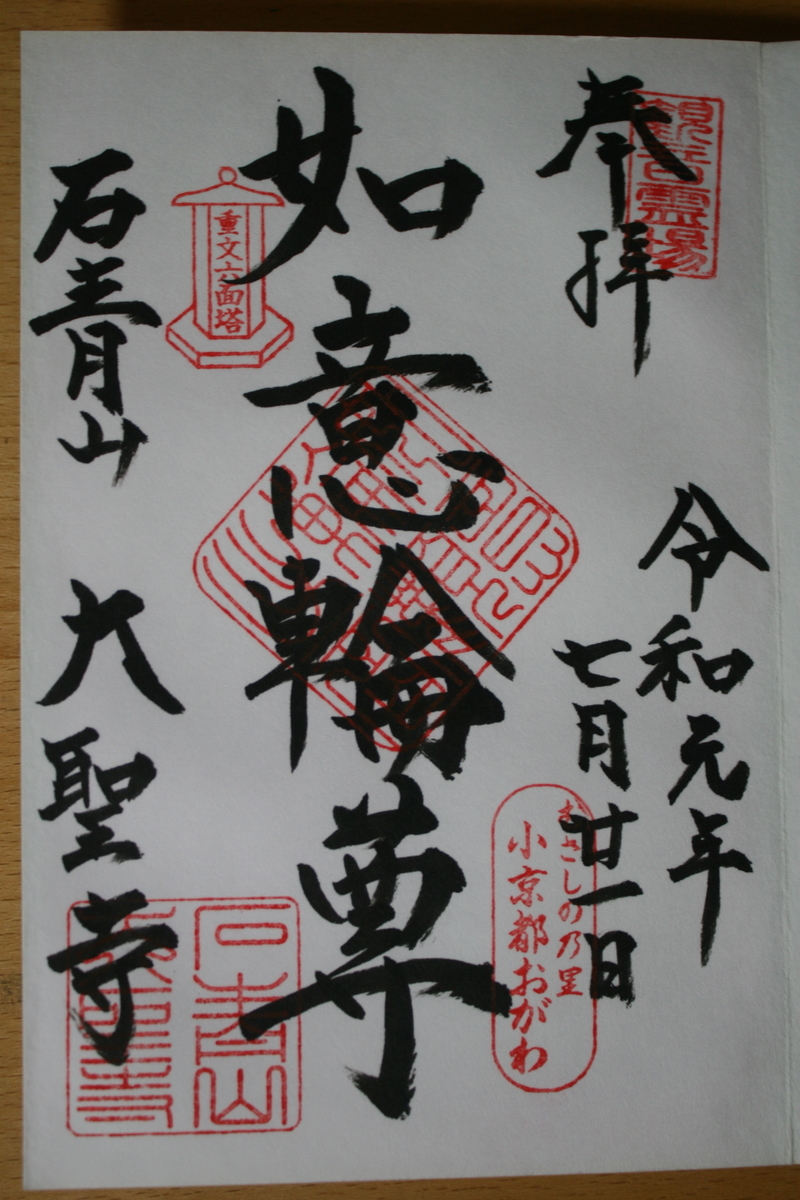 奉拝
観音霊場
令和元年
七月廿一日
むさしの乃里
小京都おがわ
如意輪尊
重文六面塔
石青山
大聖寺
石青山
大聖寺